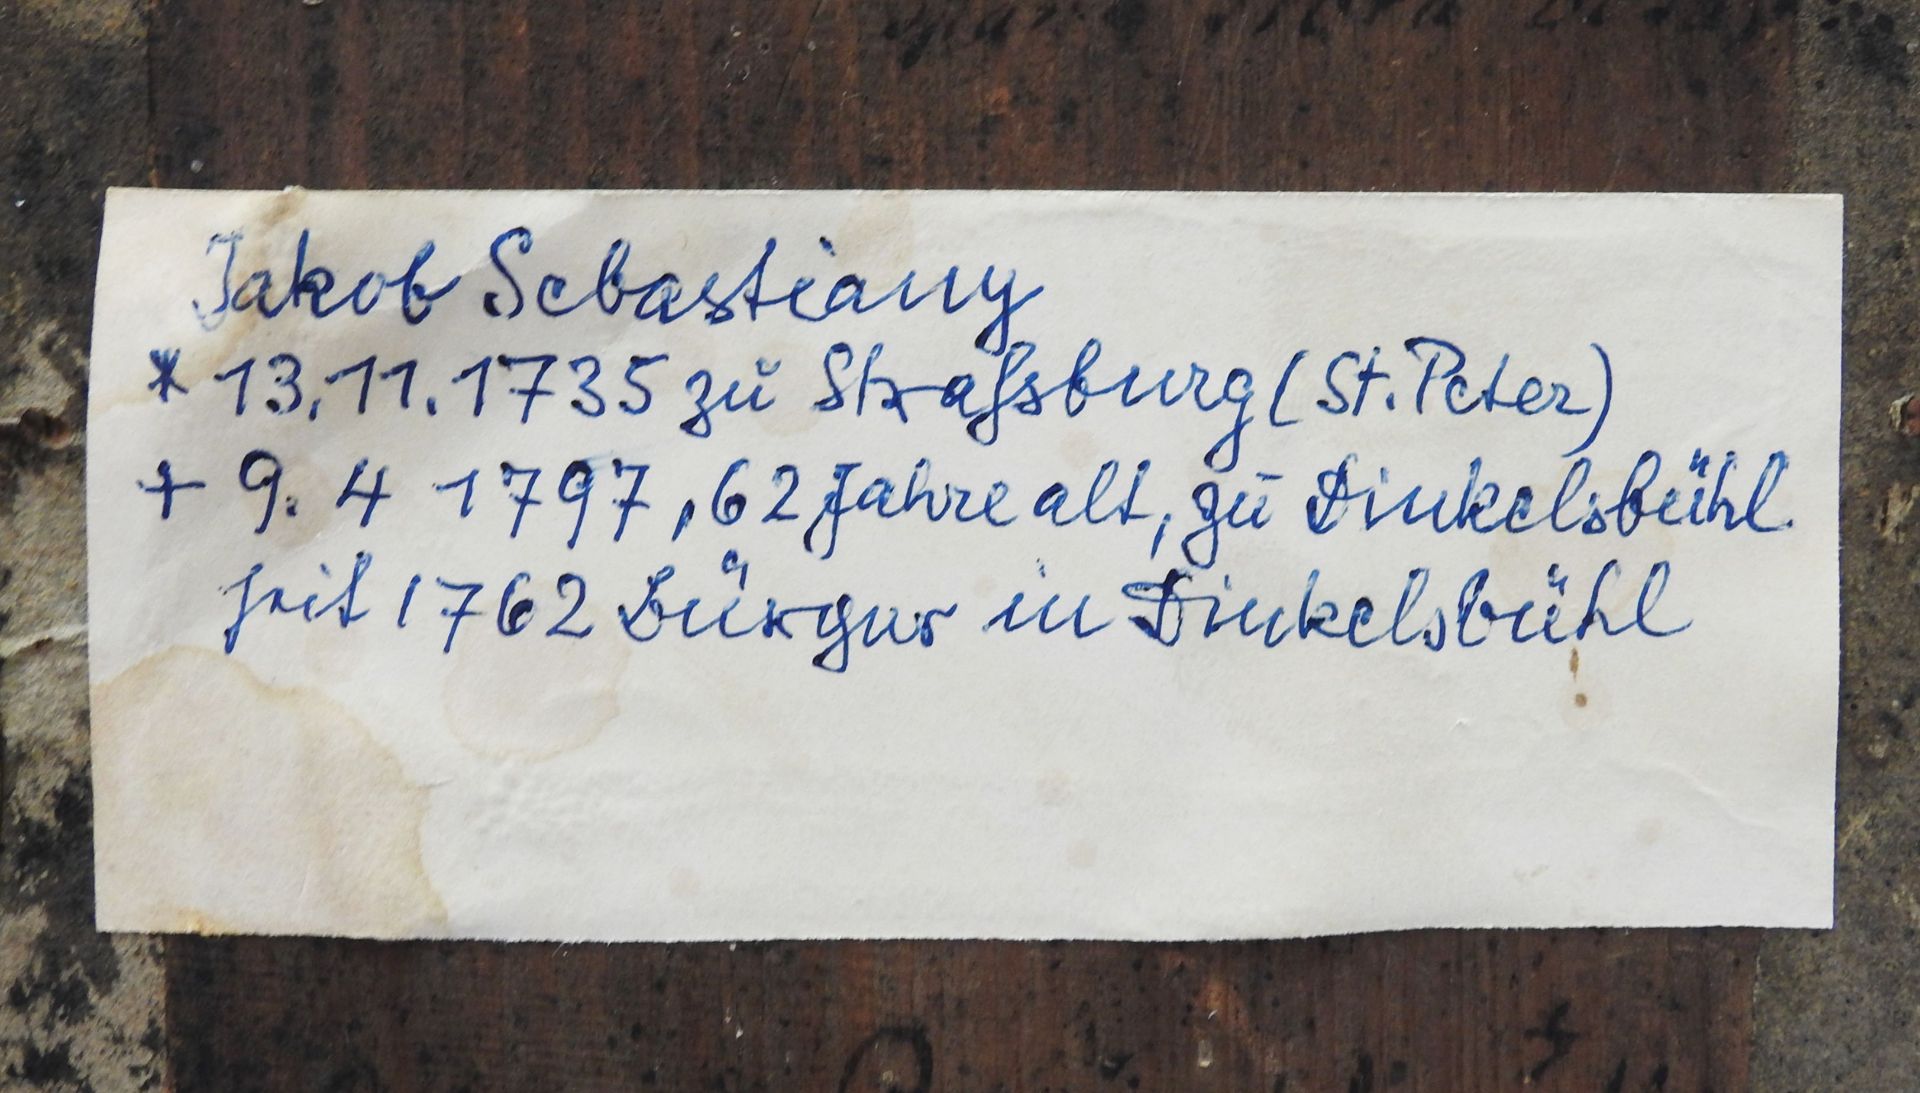 Jakob Sebastiany
* 13.11.1735 zu Straßsburg (St. Peter)
+ 9. 4 1797, 62 Jahre alt, zu Dinkelsbühl.
seit 1762 Bürger in Dinkelsbühl